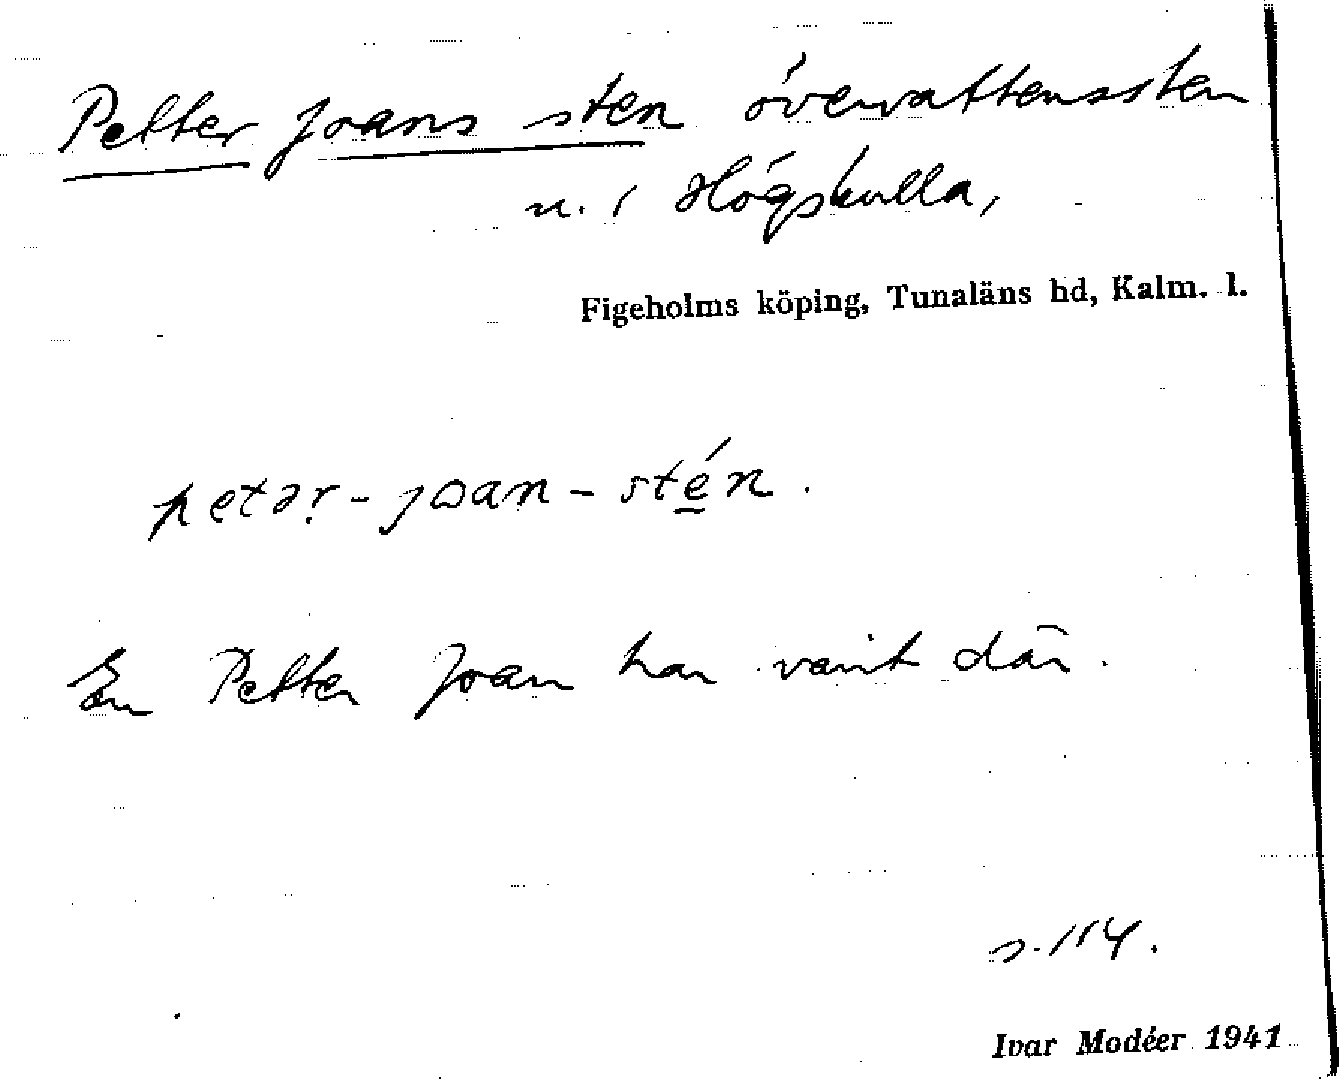 Petter Joans sten övervattenssten
n. i Högskulla,
Figeholms köping, Tunaläns hd, Kalm. l.
petər-joan-stén.
En Petter Joan har varit där.
s. 114.
Ivar Modéer 1941